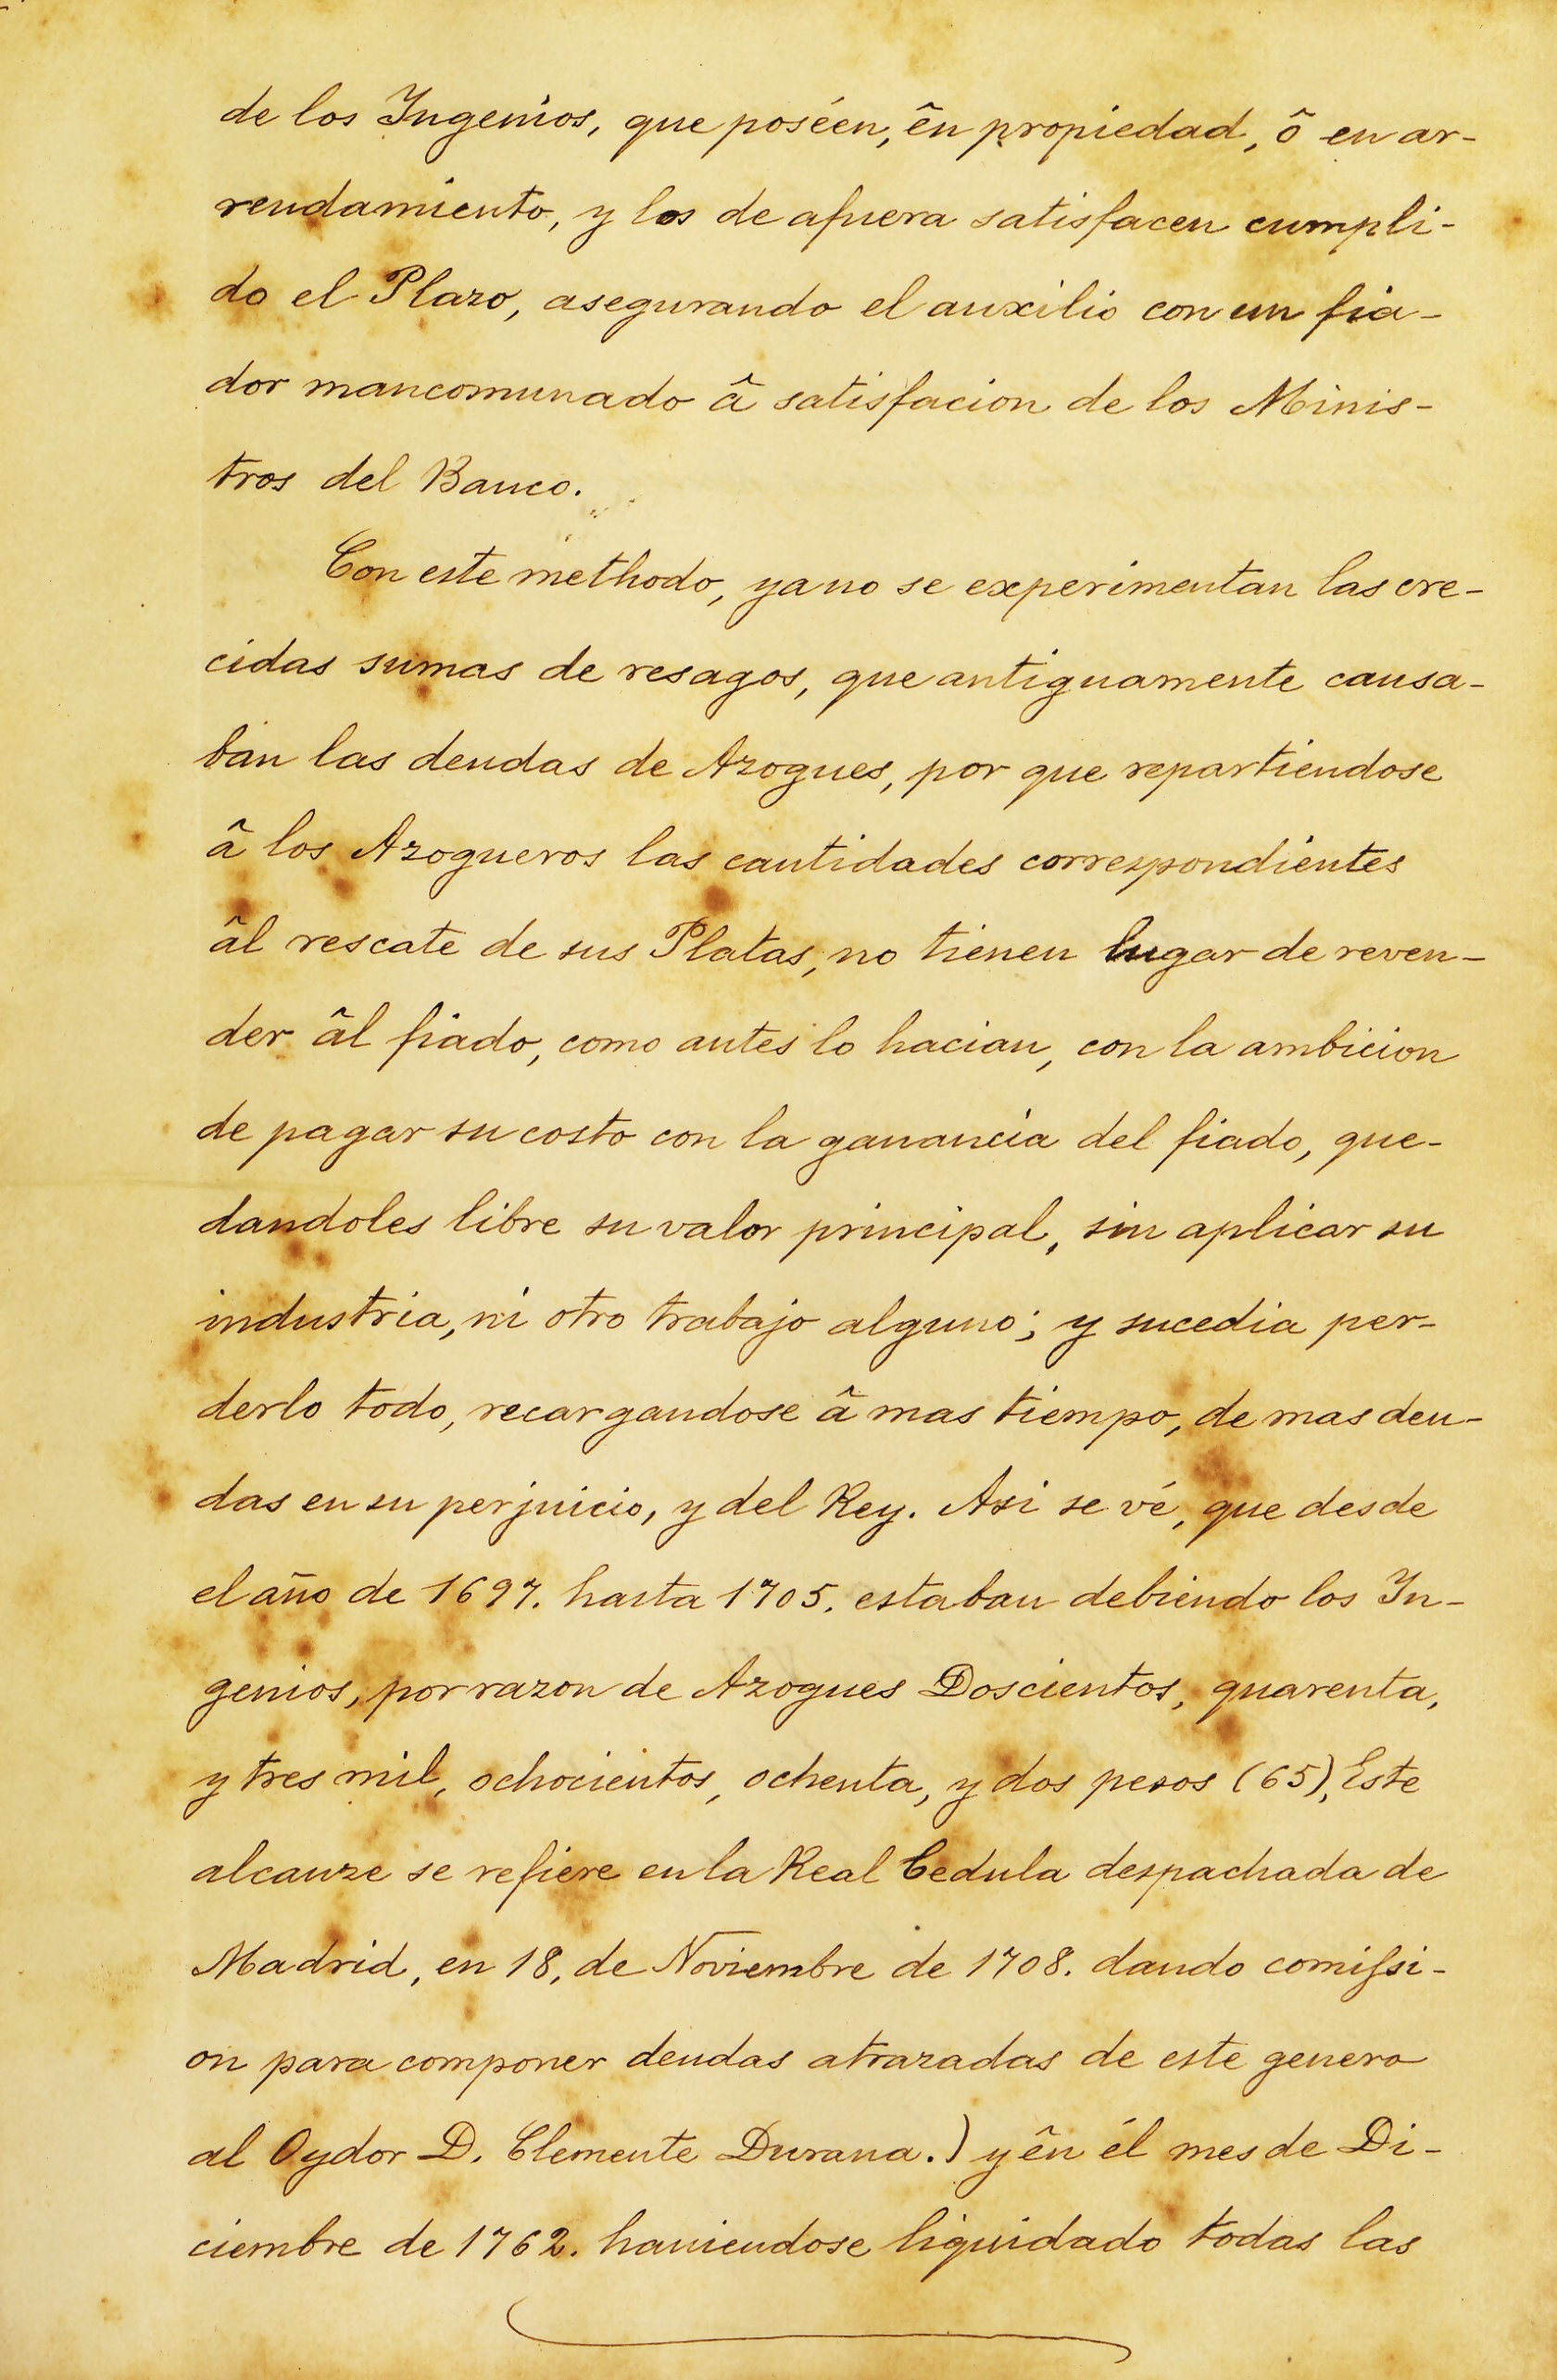 de los Ingenios, que poséen, ên propiedad, ô en ar-
rendamiento, y los de afuera satisfacen cumpli-
do el Plazo, asegurando el auxilio con un fia-
dor mancomunado â satisfacion de los Minis-
tros del Banco.
Con este methodo, ya no se experimentan las cre-
cidas sumas de resagos, que antiguamente causa-
ban las deudas de Azogues, por que repartiendose
â los Azogueros las cantidades correspondientes
âl rescate de sus Platas, no tienen lugar de reven-
der âl fiado, como antes lo hacian, con la ambicion
de pagar su costo con la ganancia del fiado, que-
dandoles libre su valor principal, sin aplicar su
industria, ni otro trabajo alguno; y sucedia per-
derlo todo, recargandose â mas tiempo, de mas deu-
das en su perjuicio, y del Rey. Asi se vé, que desde
el año de 1697. hasta 1705. estaban debiendo los In-
genios, por razon de Azogues Doscientos, quarenta,
y tres mil, ochocientos, ochenta, y dos pesos (65), Este
alcanze se refiere en la Real Cedula despachada de
Madrid, en 18, de Noviembre de 1708. dando comißi-
on para componer deudas atrazadas de este genero
al Oydor D. Clemente Durana.) y ên él mes de Di-
ciembre de 1762. haviendose liquidado todas las